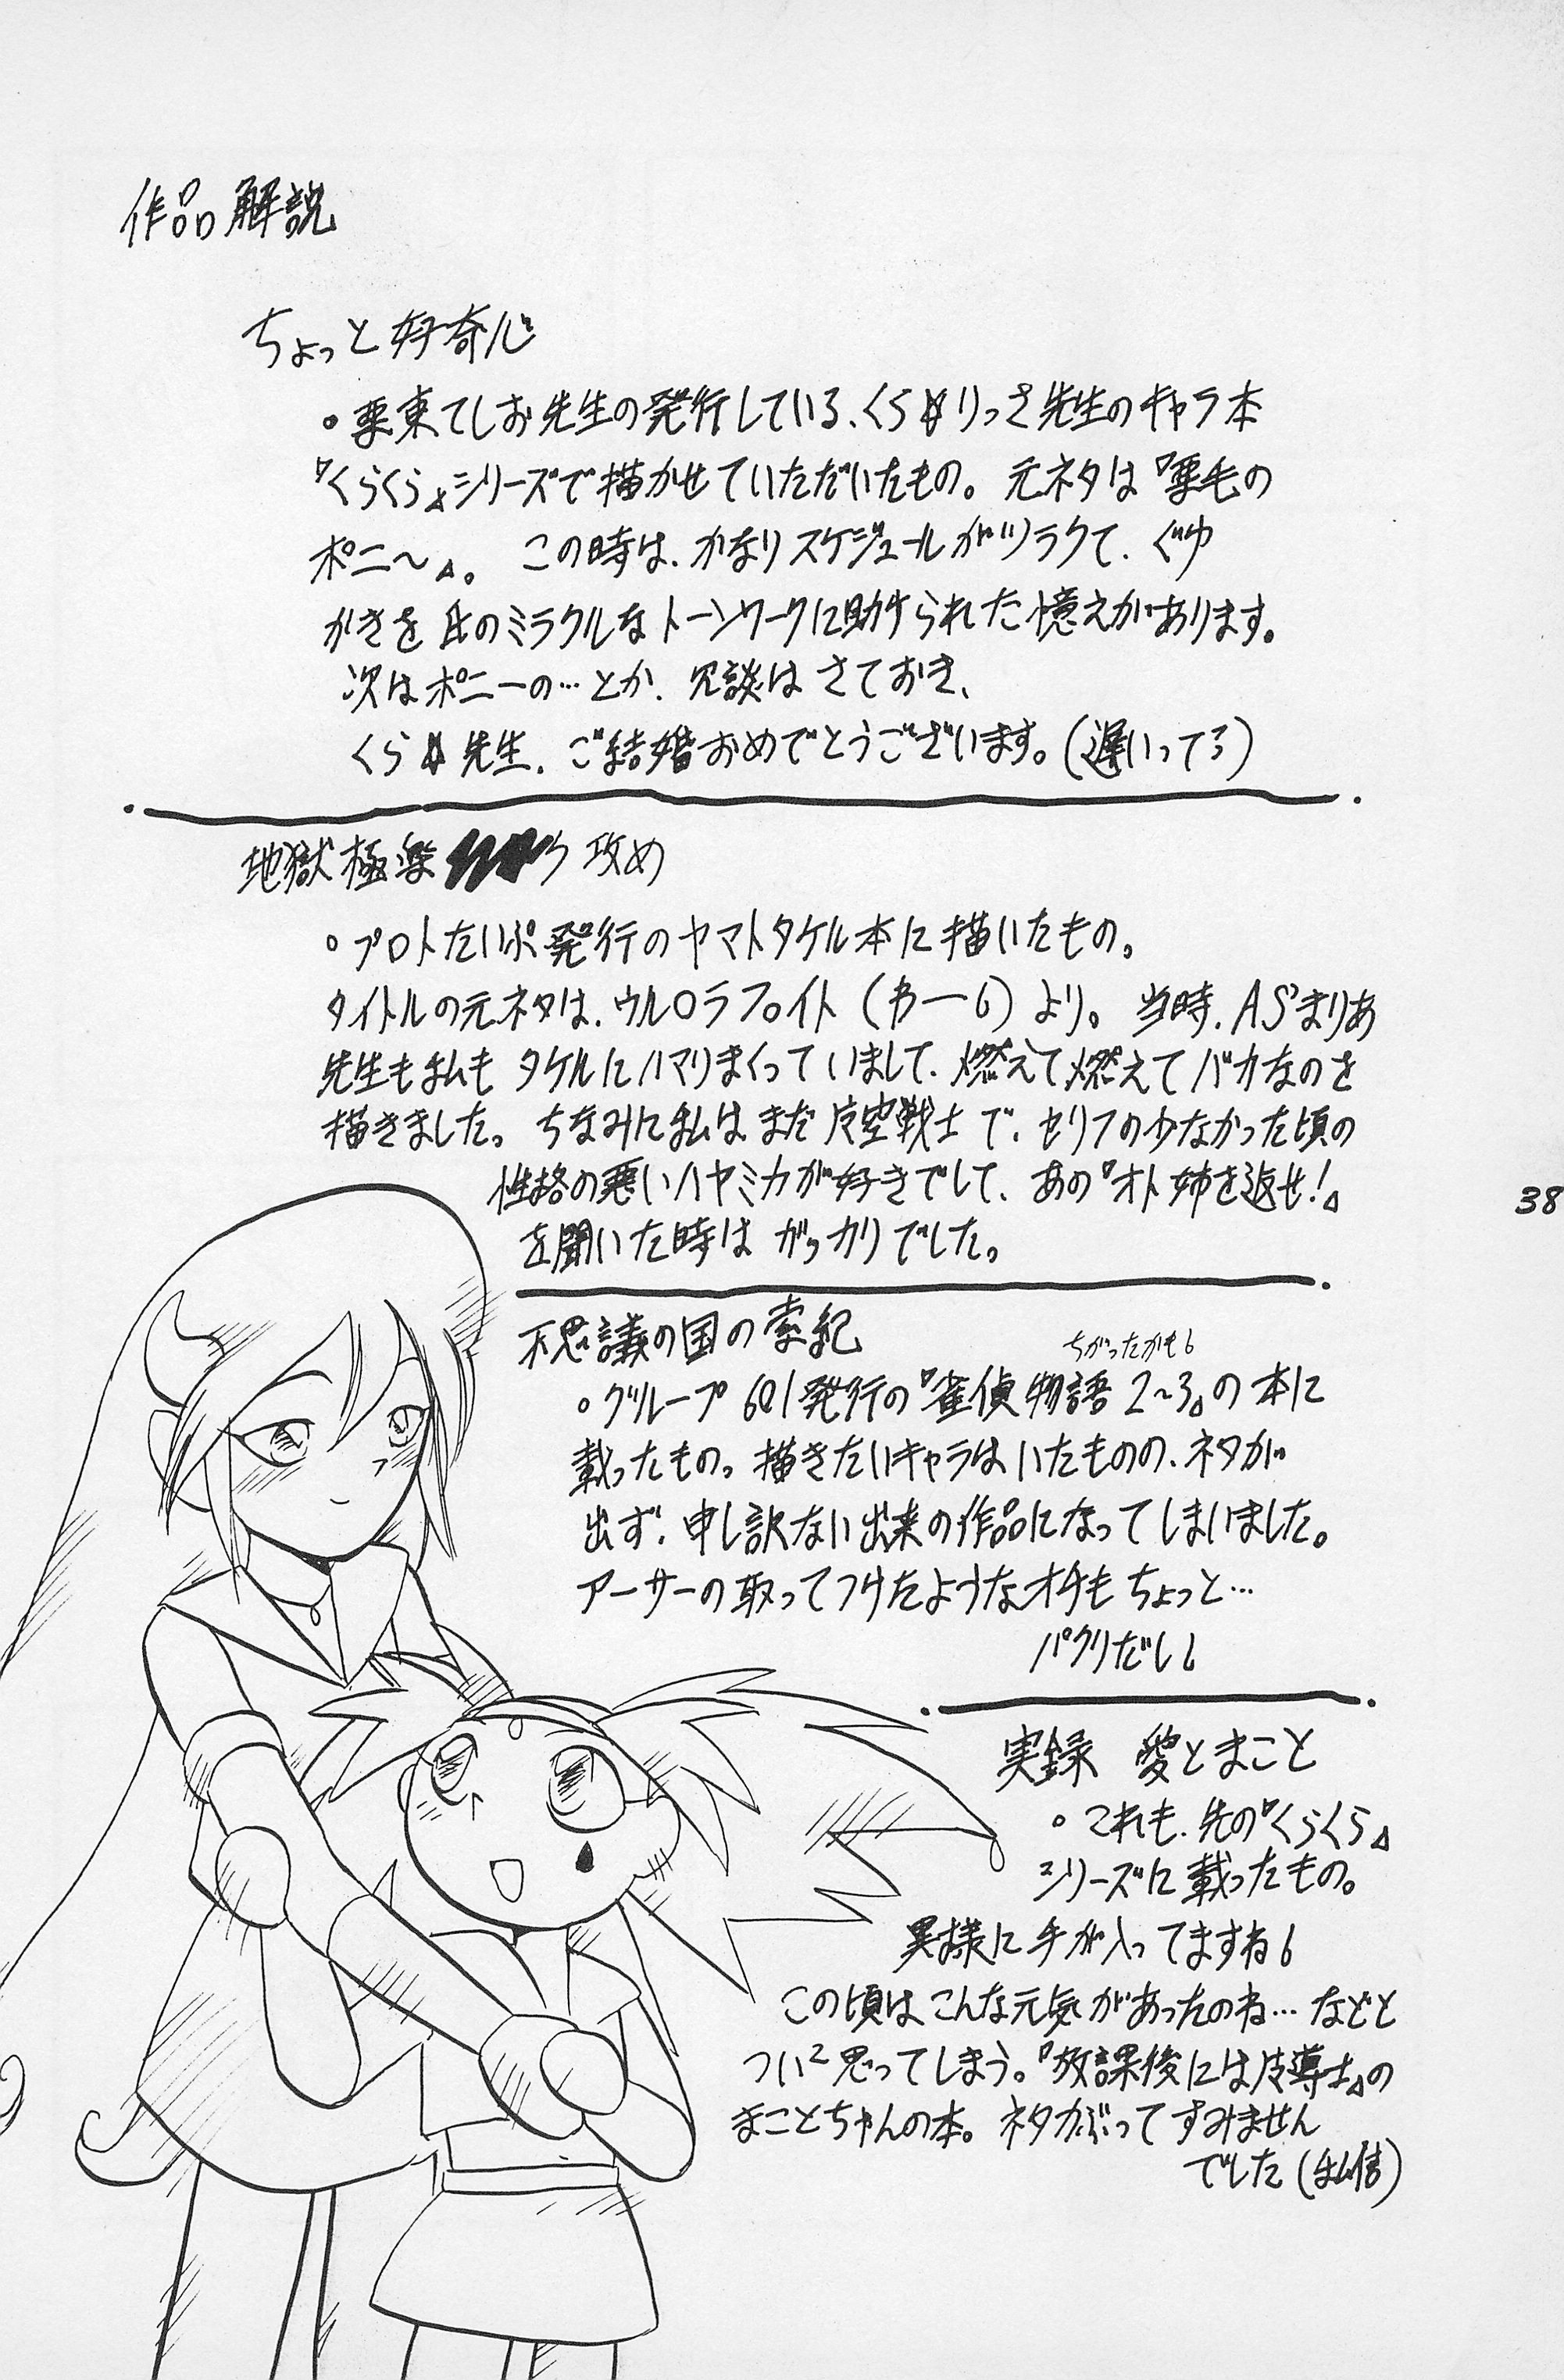 作品解説
ちょっと好奇心
・栗東てしお先生の発行している、くら☆りっさ先生のキャラ本
『くらくら』シリーズで描かせていただいたもの。元ネタは『栗毛の
ポニ〜』。この時は、かなりスケジュールがツラクて、ぐゆ
がきを氏のミラクルなトーンワークに助けられた憶えがあります。
次はポニーの…とか、冗談はさておき、
くら 先生、ご結婚おめでとうございます。(遅いってろ)
地獄極楽 攻め
・プロトたいぷ発行のヤマトタケル本に描いたもの。
タイトルの元ネタは、ウルロラファイト(わー6)より。当時、AS'まりあ
先生も私もタケルにハマりまくっていまして、燃えて燃えてバカなのを
描きました。ちなみに私はまだ 空戦士で、セリフの少なかった頃の
性格の悪いハヤミカが好きでして、あの『オト姉を返せ!』
を聞いた時はガッカリでした。
38
不思議の国の 紀
ちがったかも6
・グループ601発行の『雀偵物語2〜3』の本に
載ったもの。描きたいキャラはいたものの、ネタが
出ず、申し訳ない出来の作品になってしまいました。
アーサーの取ってつけたようなオチもちょっと…
パクリだし6
実録 愛とまこと
・これも、先の『くらくら』
シリーズに載ったもの。
異様に手が入ってますね6
この頃はこんな元気があったのね…などと
つい2思ってしまう。『放課後には 導士』の
まことちゃんの本。ネタかぶってすみません
でした(私信)